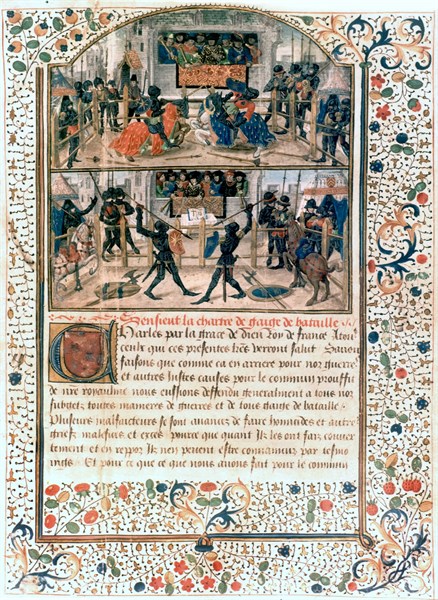 Sensieut la chartre de gaige de bataille
Charles par la grace de dieu Roy de france A tous
ceulx qui ces presentes lres verront salut Savoir
faisons que comme ca en arriere pour noz guerres
et autres Justes causes pour le commun prouffit
de nre royaulme nous eussions deffendu generalment a tous noz
subgetz toutes manieres de guerres et de tous gaiges de bataille
Plusieurs malfacteurs se sont avancez de faire homicides et autres
griefz malefais et exces pource que quant Ilz les ont fais couver
tement et en repoz Ilz nen pevent estre convaincuz par tesmo
ings Et pour ce que ce que nous avons fait pour le commun